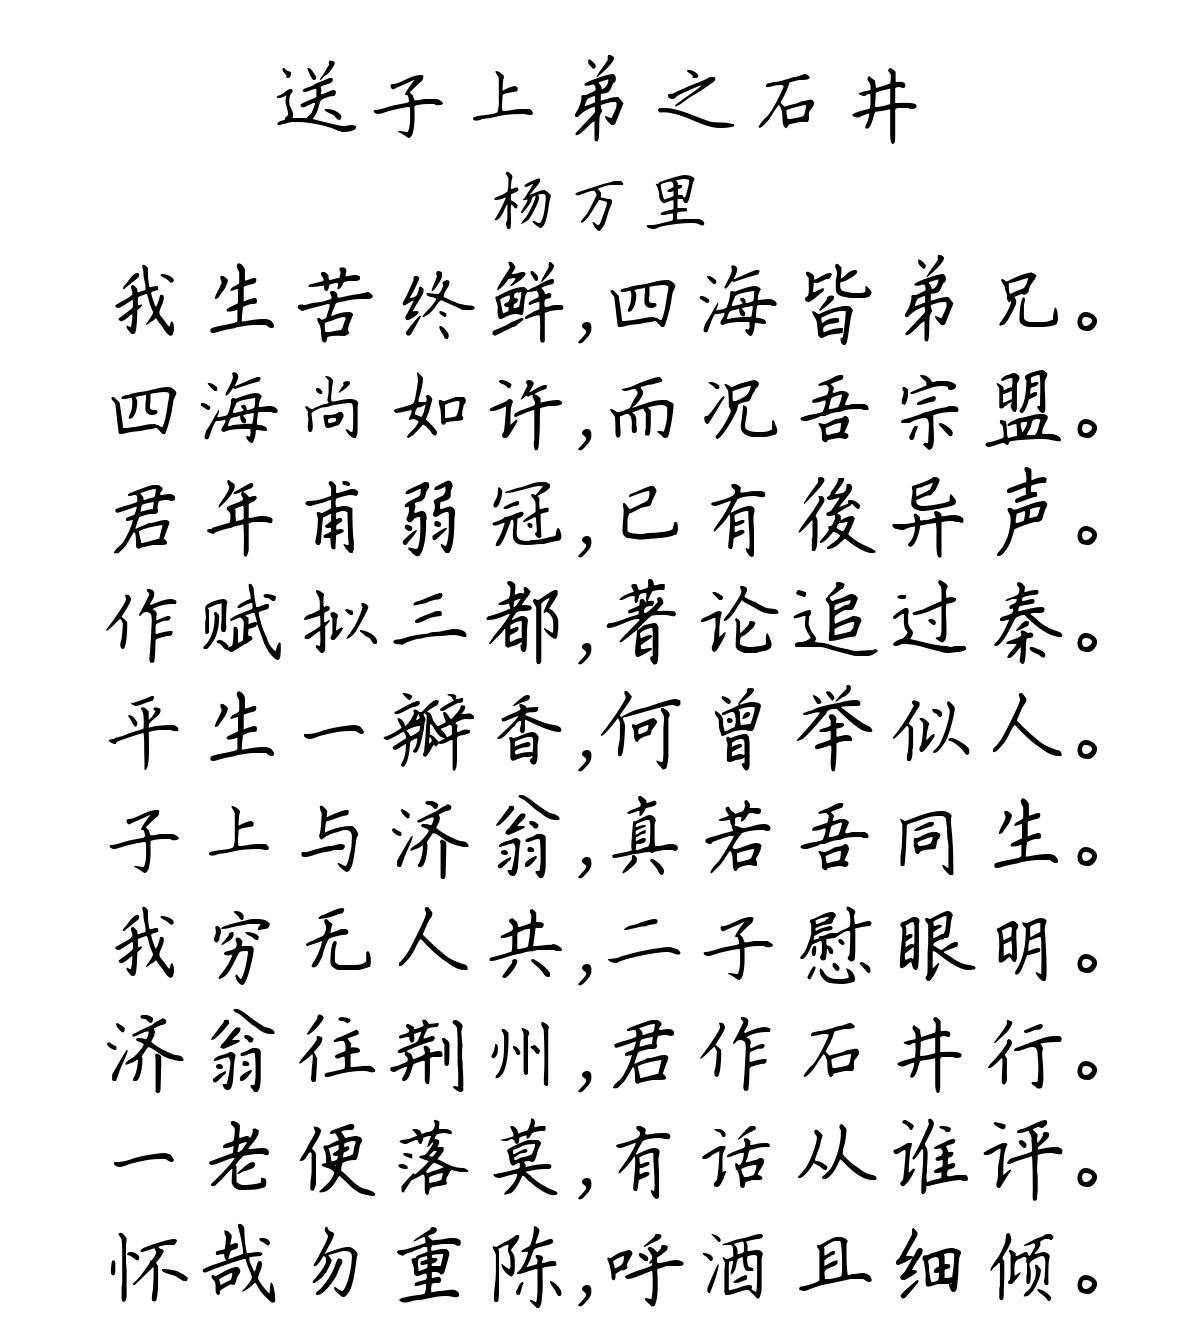 送子上弟之石井
杨万里
我生苦终鲜,四海皆弟兄。
四海尚如许,而况吾宗盟。
君年甫弱冠,已有後异声。
作赋拟三都,著论追过秦。
平生一瓣香,何曾举似人。
子上与济翁,真若吾同生。
我穷无人共,二子慰眼明。
济翁往荆州,君作石井行。
一老便落莫,有话从谁评。
怀哉勿重陈,呼酒且细倾。